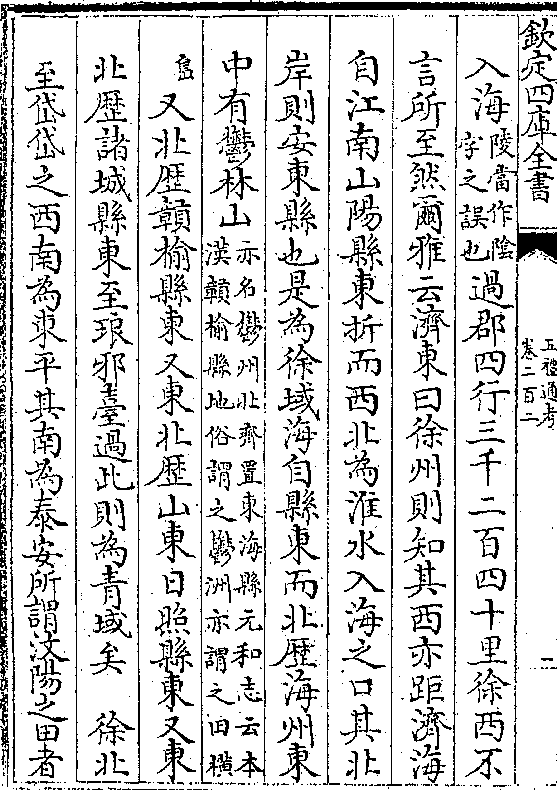 欽定四庫全書
五禮通考
卷二百二
一
入海陵當作陰
字之誤也過郡四行三千二百四十里徐西不
言所至然爾雅云濟東曰徐州則知其西亦距濟海
自江南山陽縣東折而西北為淮水入海之口其北
岸則安東縣也是為徐域海自縣東而北歴海州東
中有鬱林山亦名鬱州北齊置東海縣元和志云本
漢贛榆縣地俗謂之鬱洲亦謂之田横
島又北歴贛榆縣東又東北歴山東日照縣東又東
北歴諸城縣東至琅邪臺過此則為青域矣　徐北
至岱岱之西南為東平其南為泰安所謂汶陽之田者